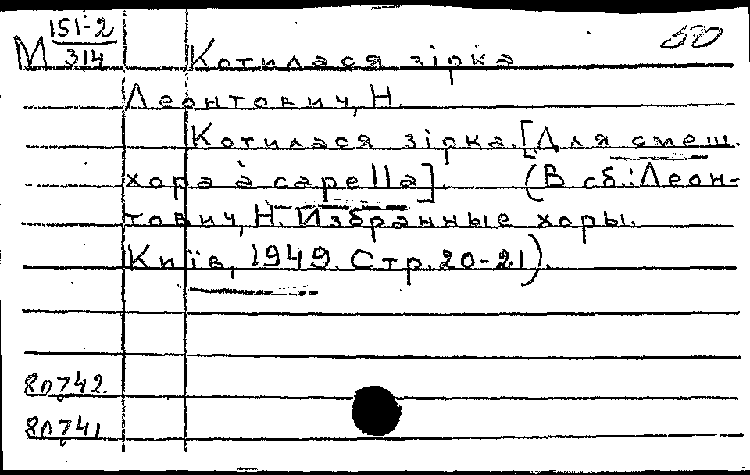 М 151-2/314
Котилася зірка
Леонтович, Н.
Котилася зірка. [Для смеш.
хора à capella]. (В сб.: Леон-
тович, Н. Избранные хоры.
Київ, 1949. Стр. 20-21).
80742
80741